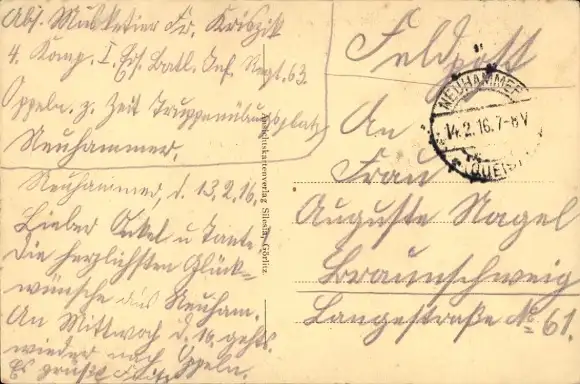 Abs. Musketier Fr. Kriszik
4. Komp. I. Ers. Batl. Inf. Regt. 63
Oppeln. z. Zeit Truppenübungsplatz
Neuhammer.
Neuhammer, d. 13.2.16.
Lieber Onkel u Tante
Die herzlichsten Glück-
wünsche aus Neuham.
An Mittwoch d. 16. gehts
wieder nach Oppeln.
Es grüßt
Feldpost
An
Frau
Auguste Nagel
Braunschweig
Langestraße No 61.
NEUHAMMER
14.2.16.7-8V
(QUEIS)
Ansichtskartenverlag Görlitz.